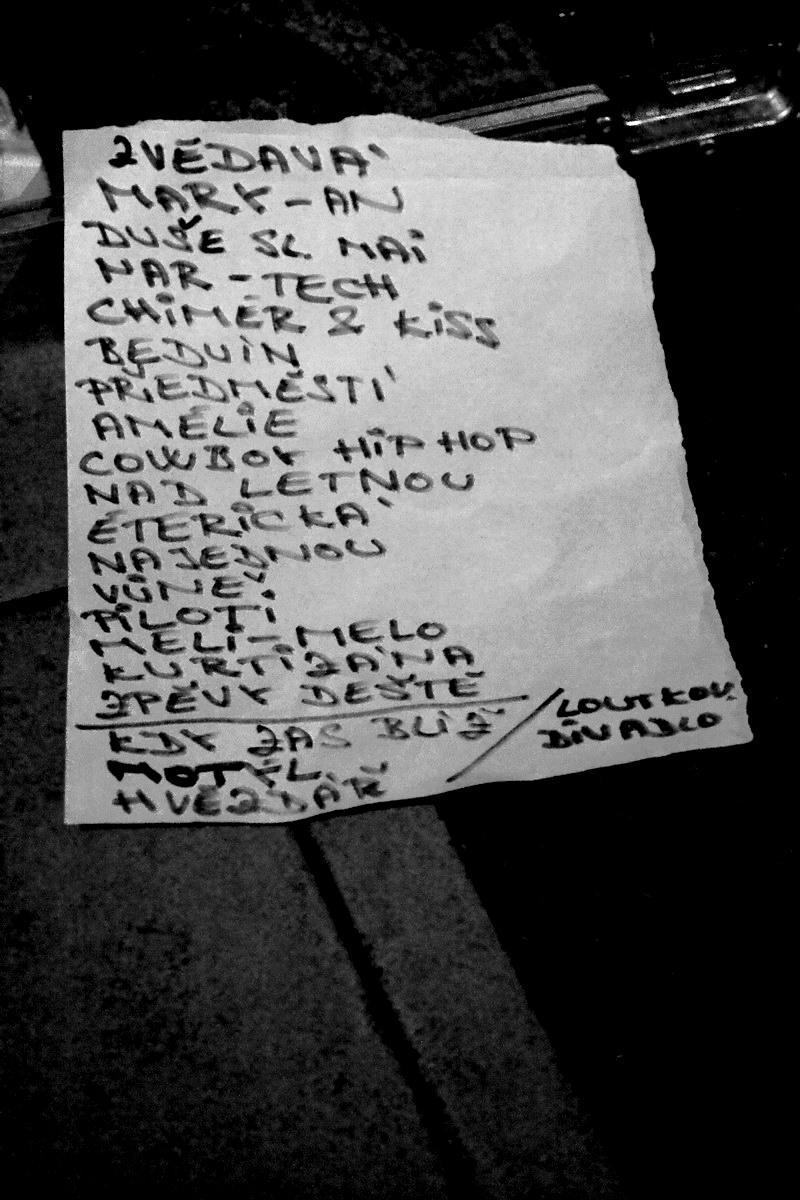 ZVĚDAVÁ
MARY-AN
DUŠE SL. MAI
NAR-TECH
CHIMÉR & KISS
BEDUÍN
PŘEDMĚSTÍ
AMÉLIE
COWBOY HIP HOP
NAD LETNOU
ÉTERICKÁ
NAJEDNOU
VŮNĚ
PILOTI
MELI-MELO
KURTIZÁNA
ZPĚVY DEŠTĚ
KDY ZAS BLIŽ / LOUTKOV.
DIVADLO
MOTÝL
HVĚZDÁŘ